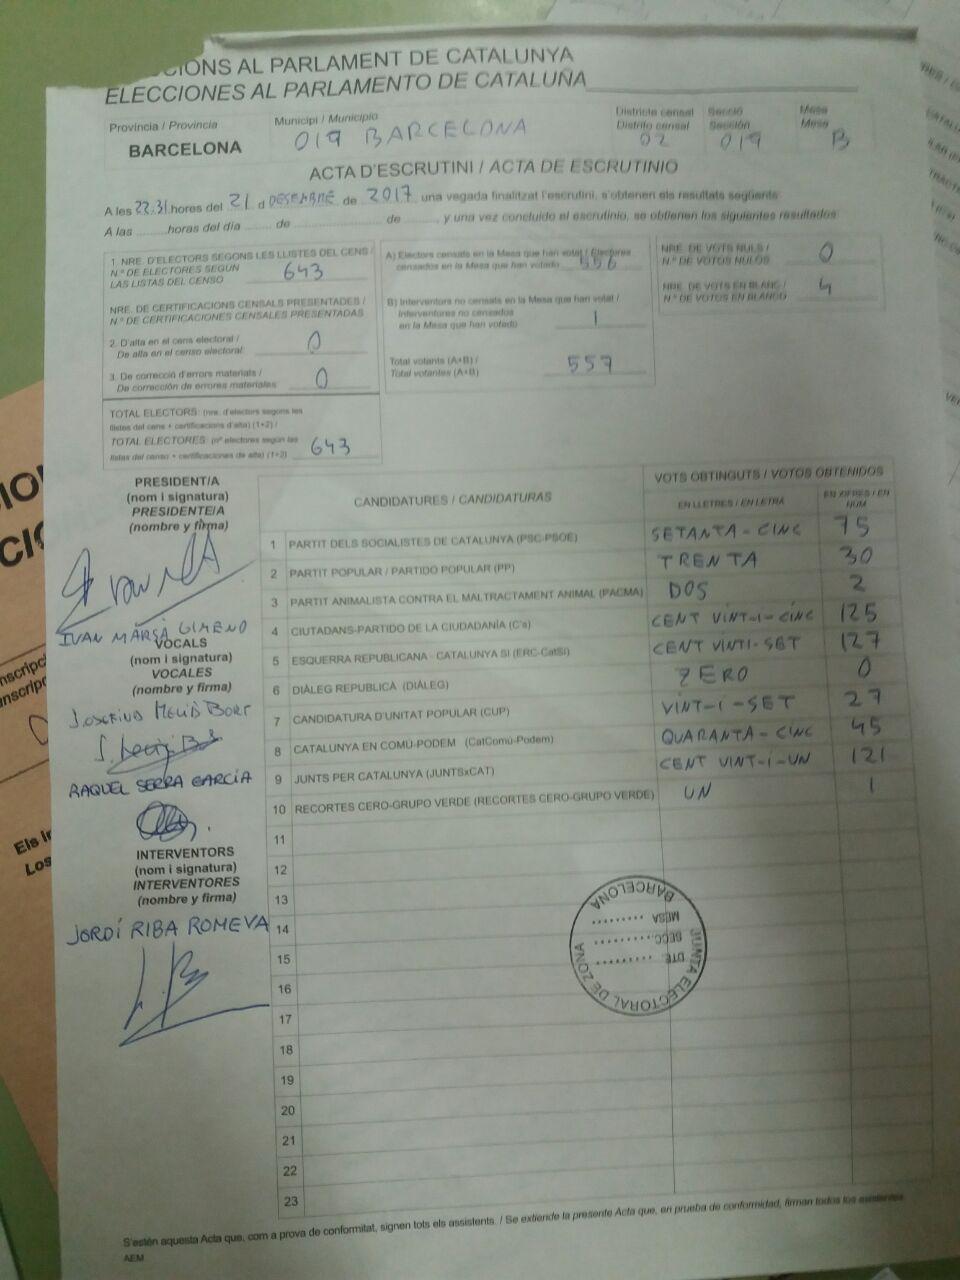 CIONS AL PARLAMENT DE CATALUNYA
ELECCIONES AL PARLAMENTO DE CATALUÑA
Província / Provincia
BARCELONA
Municipi / Municipio
019 BARCELONA
Districte censal
Distrito censal
02
Secció
Sección
019
Mesa
Mesa
B
ACTA D'ESCRUTINI / ACTA DE ESCRUTINIO
A les 22.31 hores del 21 d DESEMBRE de 2017 una vegada finalitzat l'escrutini, s'obtenen els resultats següents:
A las ..........horas del día ....... de .......................... de ........., y una vez concluido el escrutinio, se obtienen los siguientes resultados:
1. NRE. D'ELECTORS SEGONS LES LLISTES DEL CENS /
N.º DE ELECTORES SEGÚN
LAS LISTAS DEL CENSO
643
NRE. DE CERTIFICACIONS CENSALS PRESENTADES /
N.º DE CERTIFICACIONES CENSALES PRESENTADAS
2. D'alta en el cens electoral /
De alta en el censo electoral
0
3. De correcció d'errors materials /
De corrección de errores materiales
0
TOTAL ELECTORS: (nre. d'electors segons les
llistes del cens + certificacions d'alta) (1+2) /
TOTAL ELECTORES: (nº electores según las
listas del censo + certificaciones de alta) (1+2)
643
A) Electors censats en la Mesa que han votat / Electores
censados en la Mesa que han votado
556
B) Interventors no censats en la Mesa que han votat /
Interventores no censados
en la Mesa que han votado
1
Total votants (A+B) /
Total votantes (A+B)
557
NRE. DE VOTS NULS /
N.º DE VOTOS NULOS
0
NRE. DE VOTS EN BLANC /
N.º DE VOTOS EN BLANCO
4
PRESIDENT/A
(nom i signatura)
PRESIDENTE/A
(nombre y firma)
IVAN MARSÀ GIMENO
VOCALS
(nom i signatura)
VOCALES
(nombre y firma)
RAQUEL SERRA GARCÍA
INTERVENTORS
(nom i signatura)
INTERVENTORES
(nombre y firma)
JORDÍ RIBA ROMEVA
CANDIDATURES / CANDIDATURAS
VOTS OBTINGUTS / VOTOS OBTENIDOS
EN LLETRES / EN LETRA
EN XIFRES / EN NÚM
1 PARTIT DELS SOCIALISTES DE CATALUNYA (PSC-PSOE) SETANTA-CINC 75
2 PARTIT POPULAR / PARTIDO POPULAR (PP) TRENTA 30
3 PARTIT ANIMALISTA CONTRA EL MALTRACTAMENT ANIMAL (PACMA) DOS 2
4 CIUTADANS-PARTIDO DE LA CIUDADANÍA (C's) CENT VINT-I-CINC 125
5 ESQUERRA REPUBLICANA - CATALUNYA SÍ (ERC-CatSí) CENT VINTI-SET 127
6 DIÀLEG REPUBLICÀ (DIÀLEG) ZERO 0
7 CANDIDATURA D'UNITAT POPULAR (CUP) VINT-I-SET 27
8 CATALUNYA EN COMÚ-PODEM (CatComú-Podem) QUARANTA-CINC 45
9 JUNTS PER CATALUNYA (JUNTSxCAT) CENT VINT-I-UN 121
10 RECORTES CERO-GRUPO VERDE (RECORTES CERO-GRUPO VERDE) UN 1
11
12
13
14
15
16
17
18
19
20
21
22
23
JUNTA ELECTORAL DE ZONA
DTE. .........
SECC. .........
MESA .........
BARCELONA
S'estén aquesta Acta que, com a prova de conformitat, signen tots els assistents. / Se extiende la presente Acta que, en prueba de conformidad, firman todos los asistentes.
AEM
Els in
Los